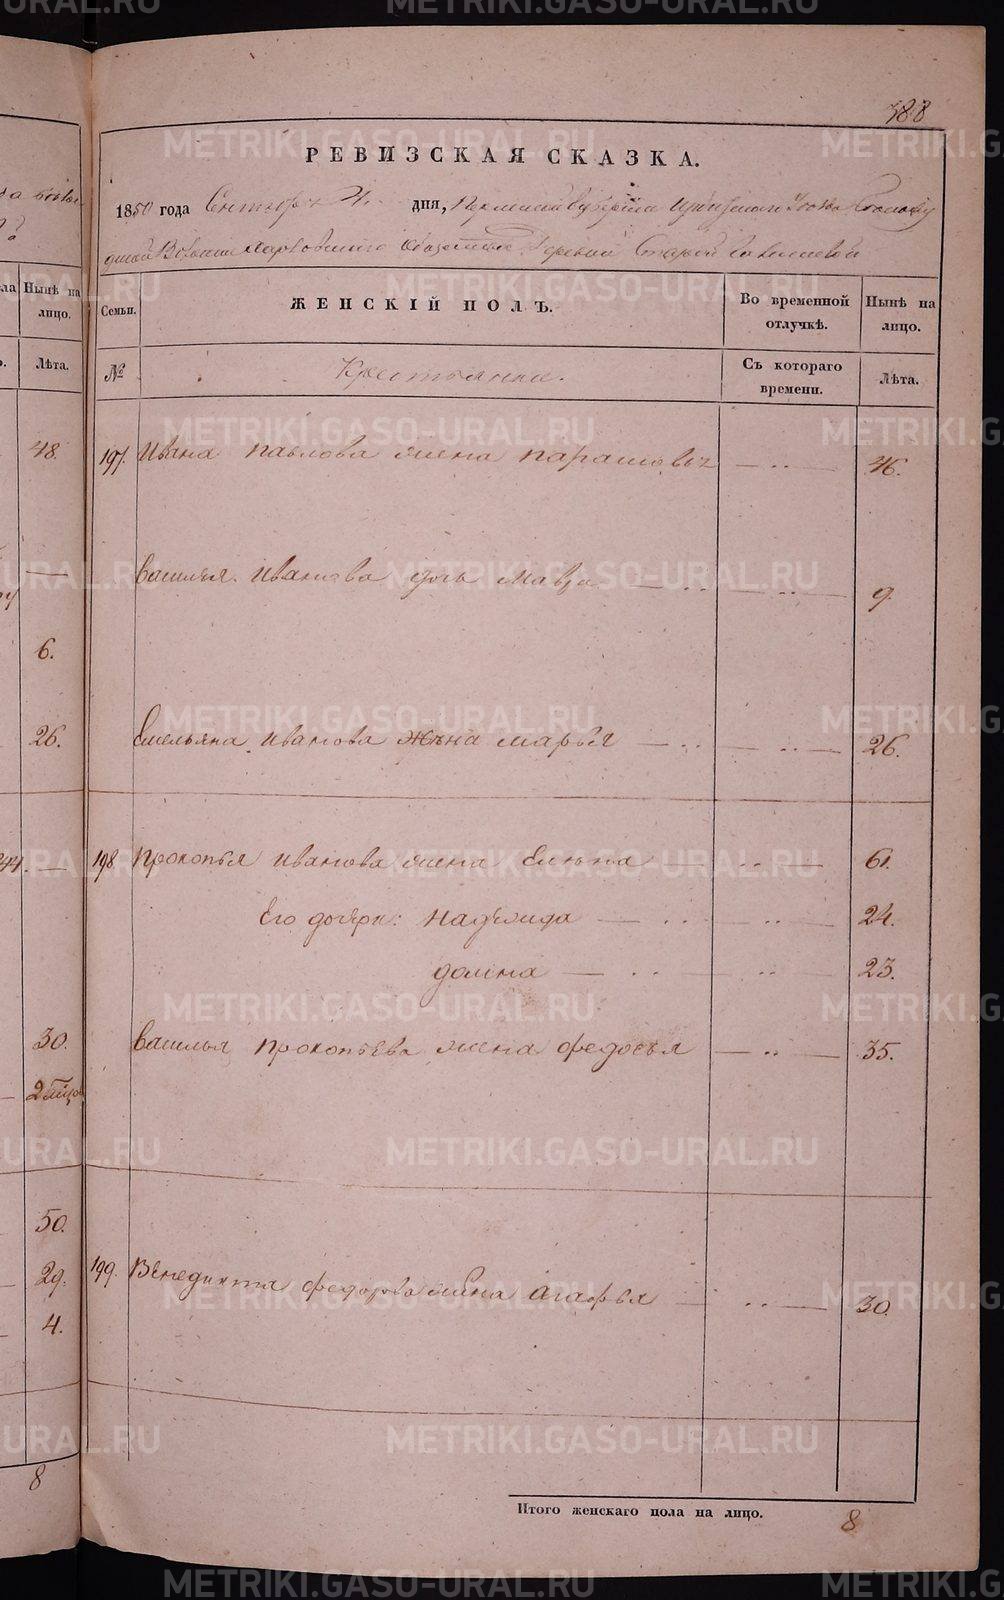 388
РЕВИЗСКАЯ СКАЗКА.
1850 года Сентября дня, Пермской Губернии
Общества Деревни Старой
ла Нынѣ на лицо.
Лѣта.
Семьи. ЖЕНСКІЙ ПОЛЪ. Во временной отлучкѣ. Нынѣ на лицо.
№ Крестьянки. Съ котораго времени. Лѣта.
48. 197. Ивана Павлова жена 46.
Василья Иванова дочь Мавра 9.
6.
26. Емельяна Иванова жена Марья 26.
198 Прокопья Иванова жена Елена 61.
Его дочери: Надежида 24.
Домна 23.
30. Василья Прокопьева жена Федосья 35.
50.
29. 199. Венедикта Федорова жена Агафья 30.
4.
8
Итого женскаго пола на лицо. 8
METRIKI.GASO-URAL.RU